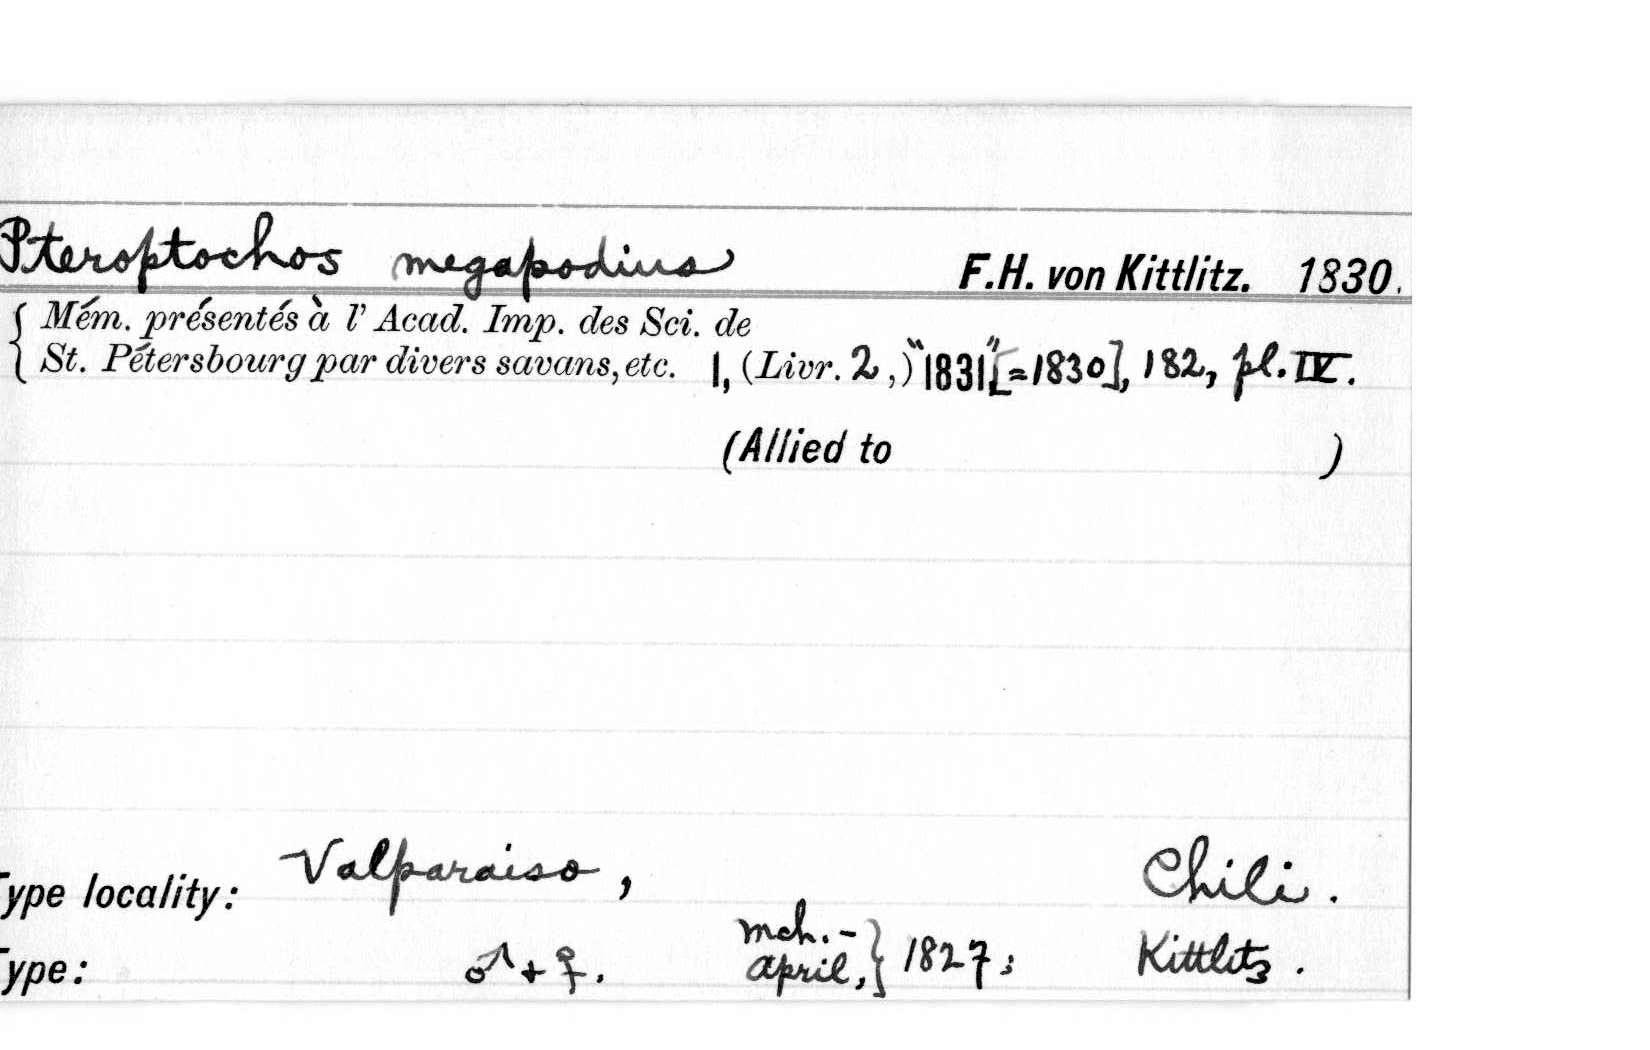 Pteroptochos megapodius F.H. von Kittlitz. 1830.
{ Mém. présentés à l' Acad. Imp. des Sci. de
St. Pétersbourg par divers savans, etc. 1, (Livr. 2,) "1831" [=1830], 182, pl. IV.
(Allied to )
Type locality: Valparaiso, Chili.
Type: ♂ + ♀. mch. - april, } 1827; Kittlitz.